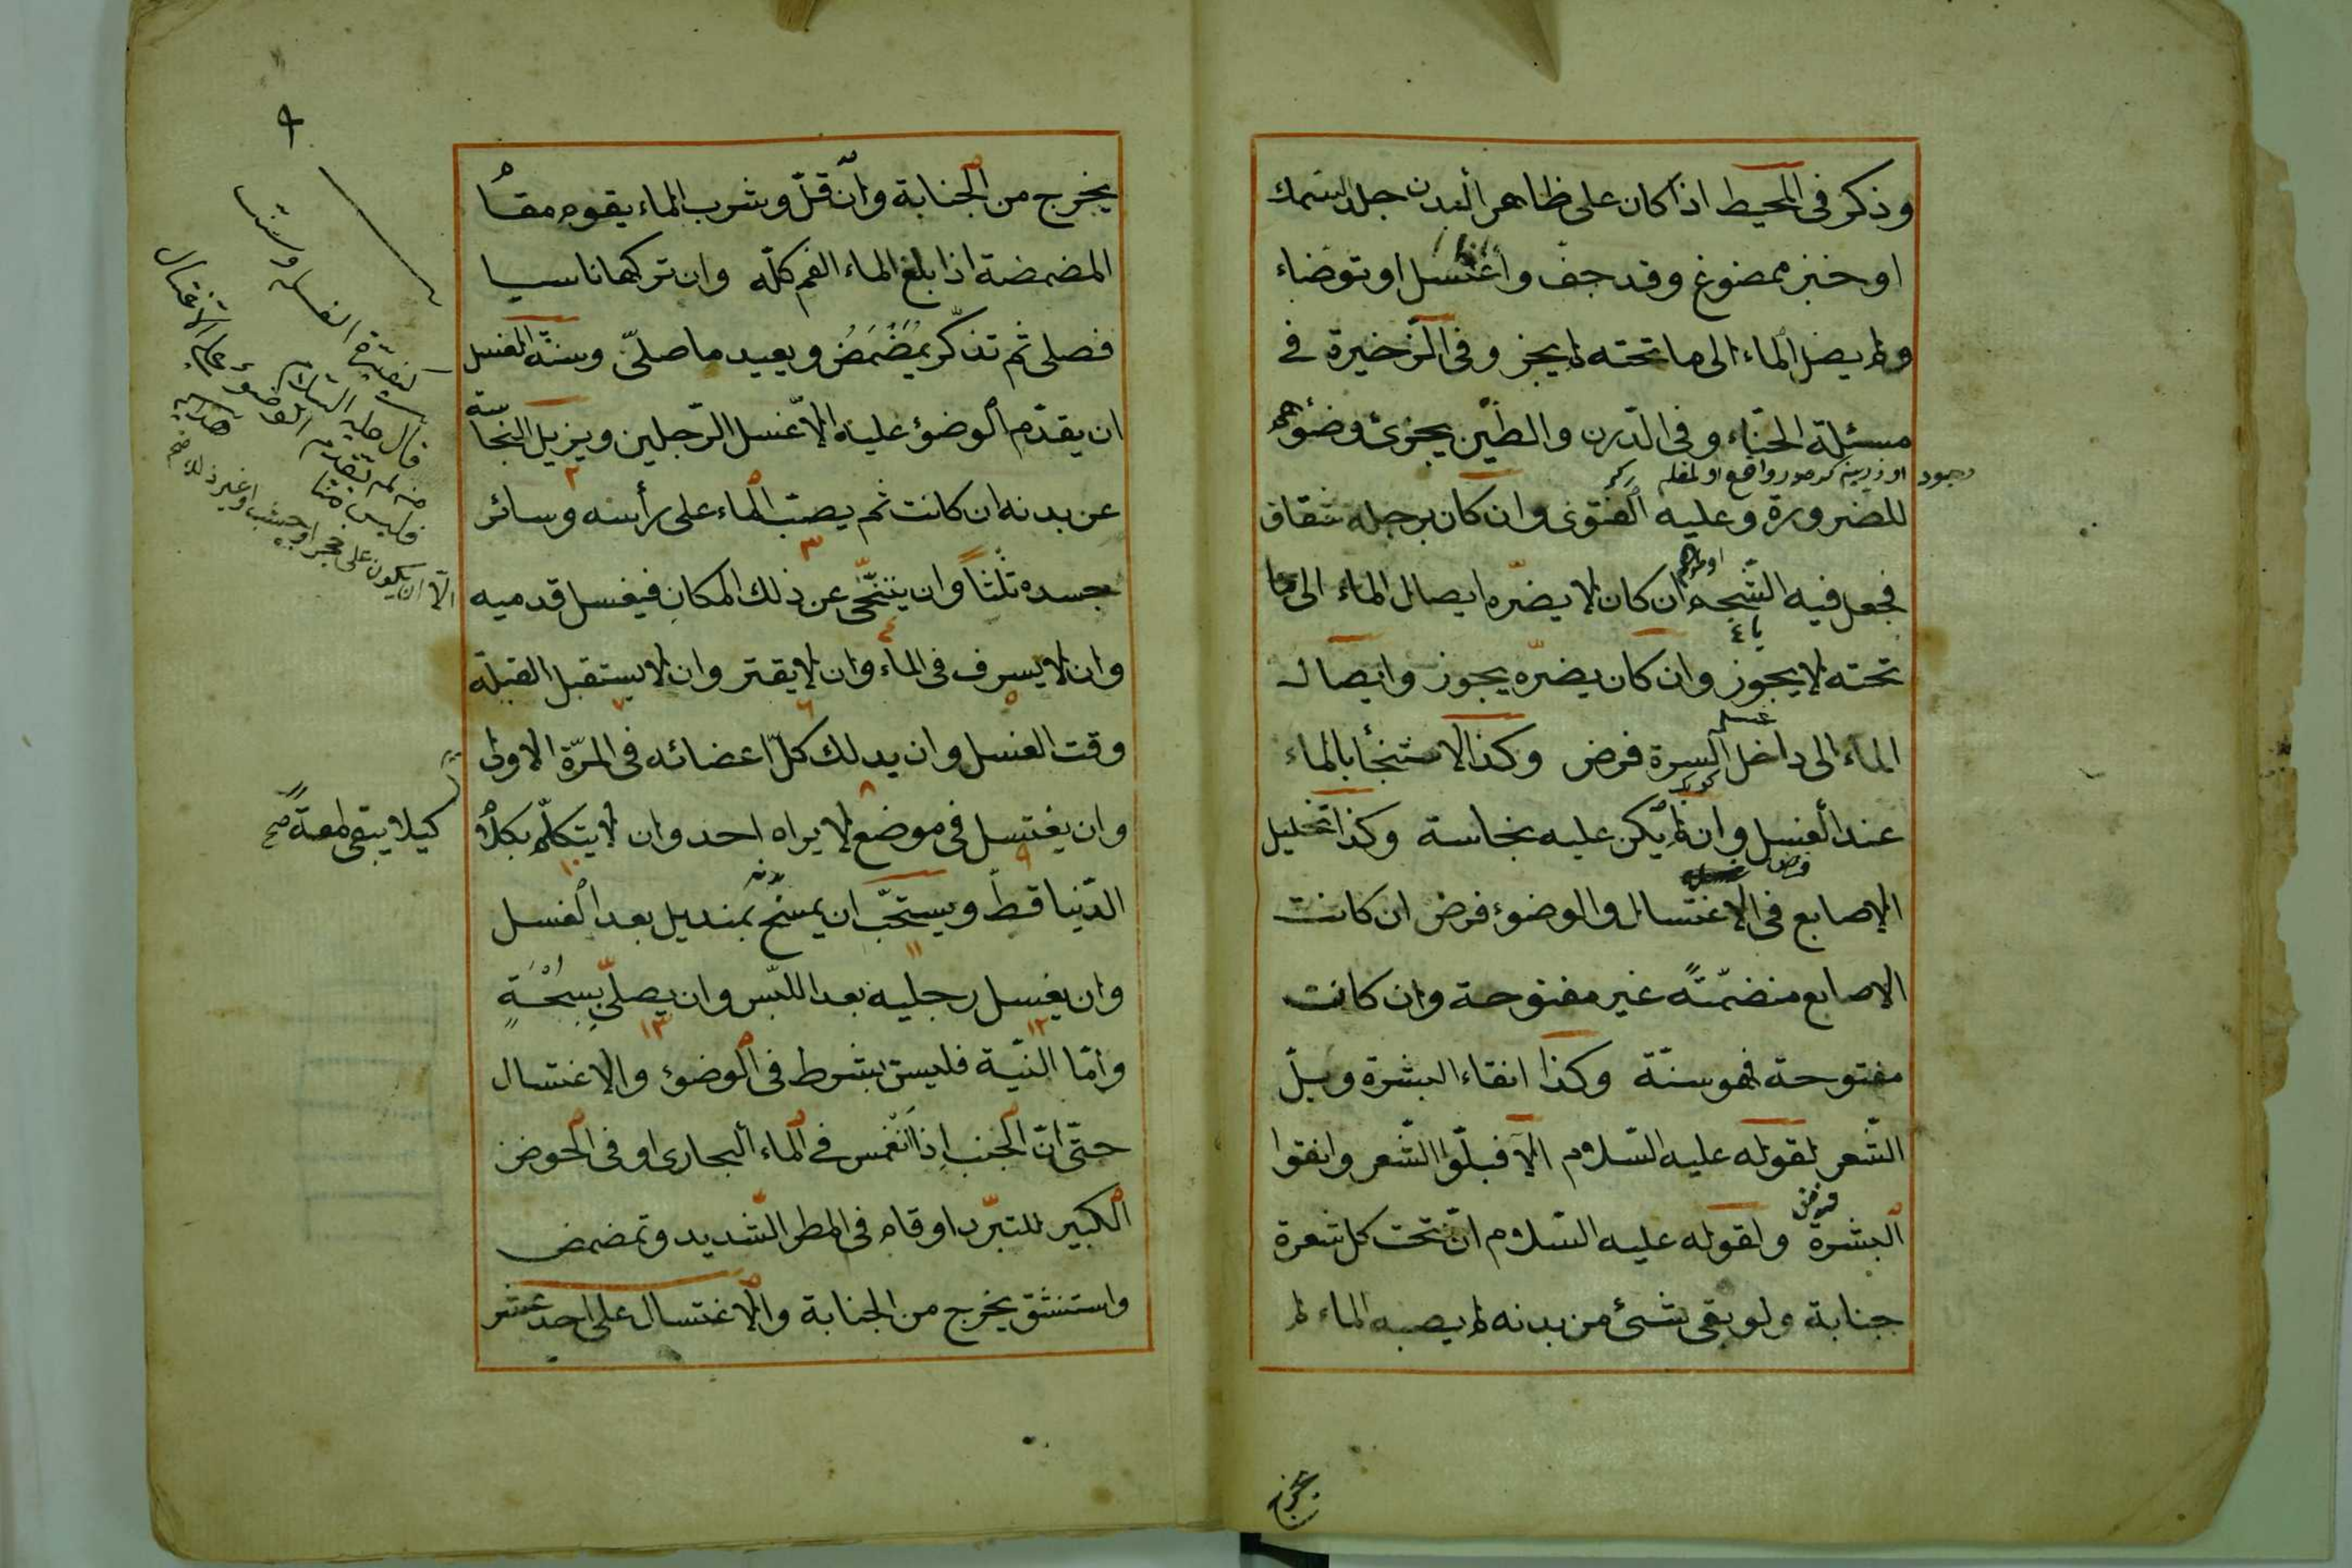 وذكر فى المحيط اذا كان على ظاهر البدن جلد سمك
او خبز ممضوغ وقد جف واغتسل او توضاء
ولم يصل الماء الى ما تحته لم يجز وفى الذخيرة فى
مسئلة الحناء وفى الدرن والطين يجزئ وضوؤهم
للضرورة وعليه الفتوى وان كان برجله شقاق
فجعل فيه الشحم ان كان لا يضره ايصال الماء الى ما
تحته لا يجوز وان كان يضره يجوز وايصال
الماء الى داخل السرة فرض وكذا الاستنجأ بالماء
عند الغسل وان لم يكن عليه نجاسة وكذا تخليل
الاصابع فى الاغتسال والوضوء فرض ان كانت
الاصابع منضمّتةً غير مفتوحة وان كانت
مفتوحة فهو سنّة وكذا انقاء البشرة وبلّ
الشّعر لقوله عليه السّلام الا فبلّوا الشّعر وانقوا
فرض
البشرة ولقوله عليه السّلام انّ تحت كل شعرة
جنابة ولو بقى شئ من بدنه لم يصبه الماء لم
يخرج
يخرج من الجنابة وان قلّ وشرب الماء يقوم مقام
المضمضة اذا بلغ الماء الفم كلّه وان تركها ناسيا
فصلى ثم تذكّر يمضمض ويعيد ما صلىّ وسنّة الغسل
ان يقدّم الوضؤ عليه الاّ غسل الرّجلين ويزيل النجاسة
عن بدنه ان كانت ثم يصبّ الماء على رأسه وسائر
جسده ثلثاً وان يتنحّى عن ذلك المكان فيغسل قدميه
الّا ان يكون على حجر او خشب او غير ذلك صح
وان لا يسرف فى الماء وان لا يقتر وان لا يستقبل القبلة
وقت الغسل وان يدلك كلّ اعضائه فى المرّة الاولى
كيلا يبقى لمعةً صح
وان يغتسل فى موضع لا يراه احد وان لا يتكلّم بكلام
الدّنيا قطّ ويستحبّ ان يمسح بمنديل بعد الغسل
وان يغسل رجليه بعد اللبس وان يصلّى بسبحةٍ
وامّا النيّة فليس بشرط فى الوضوء والاغتسال
حتّى انّ الجنب اذا انغمس فى الماء الجارى او فى الحوض
الكبير للتبرّد او قام فى المطر الشّديد وتمضمض
واستنشق يخرج من الجنابة والاغتسال على احد عشر